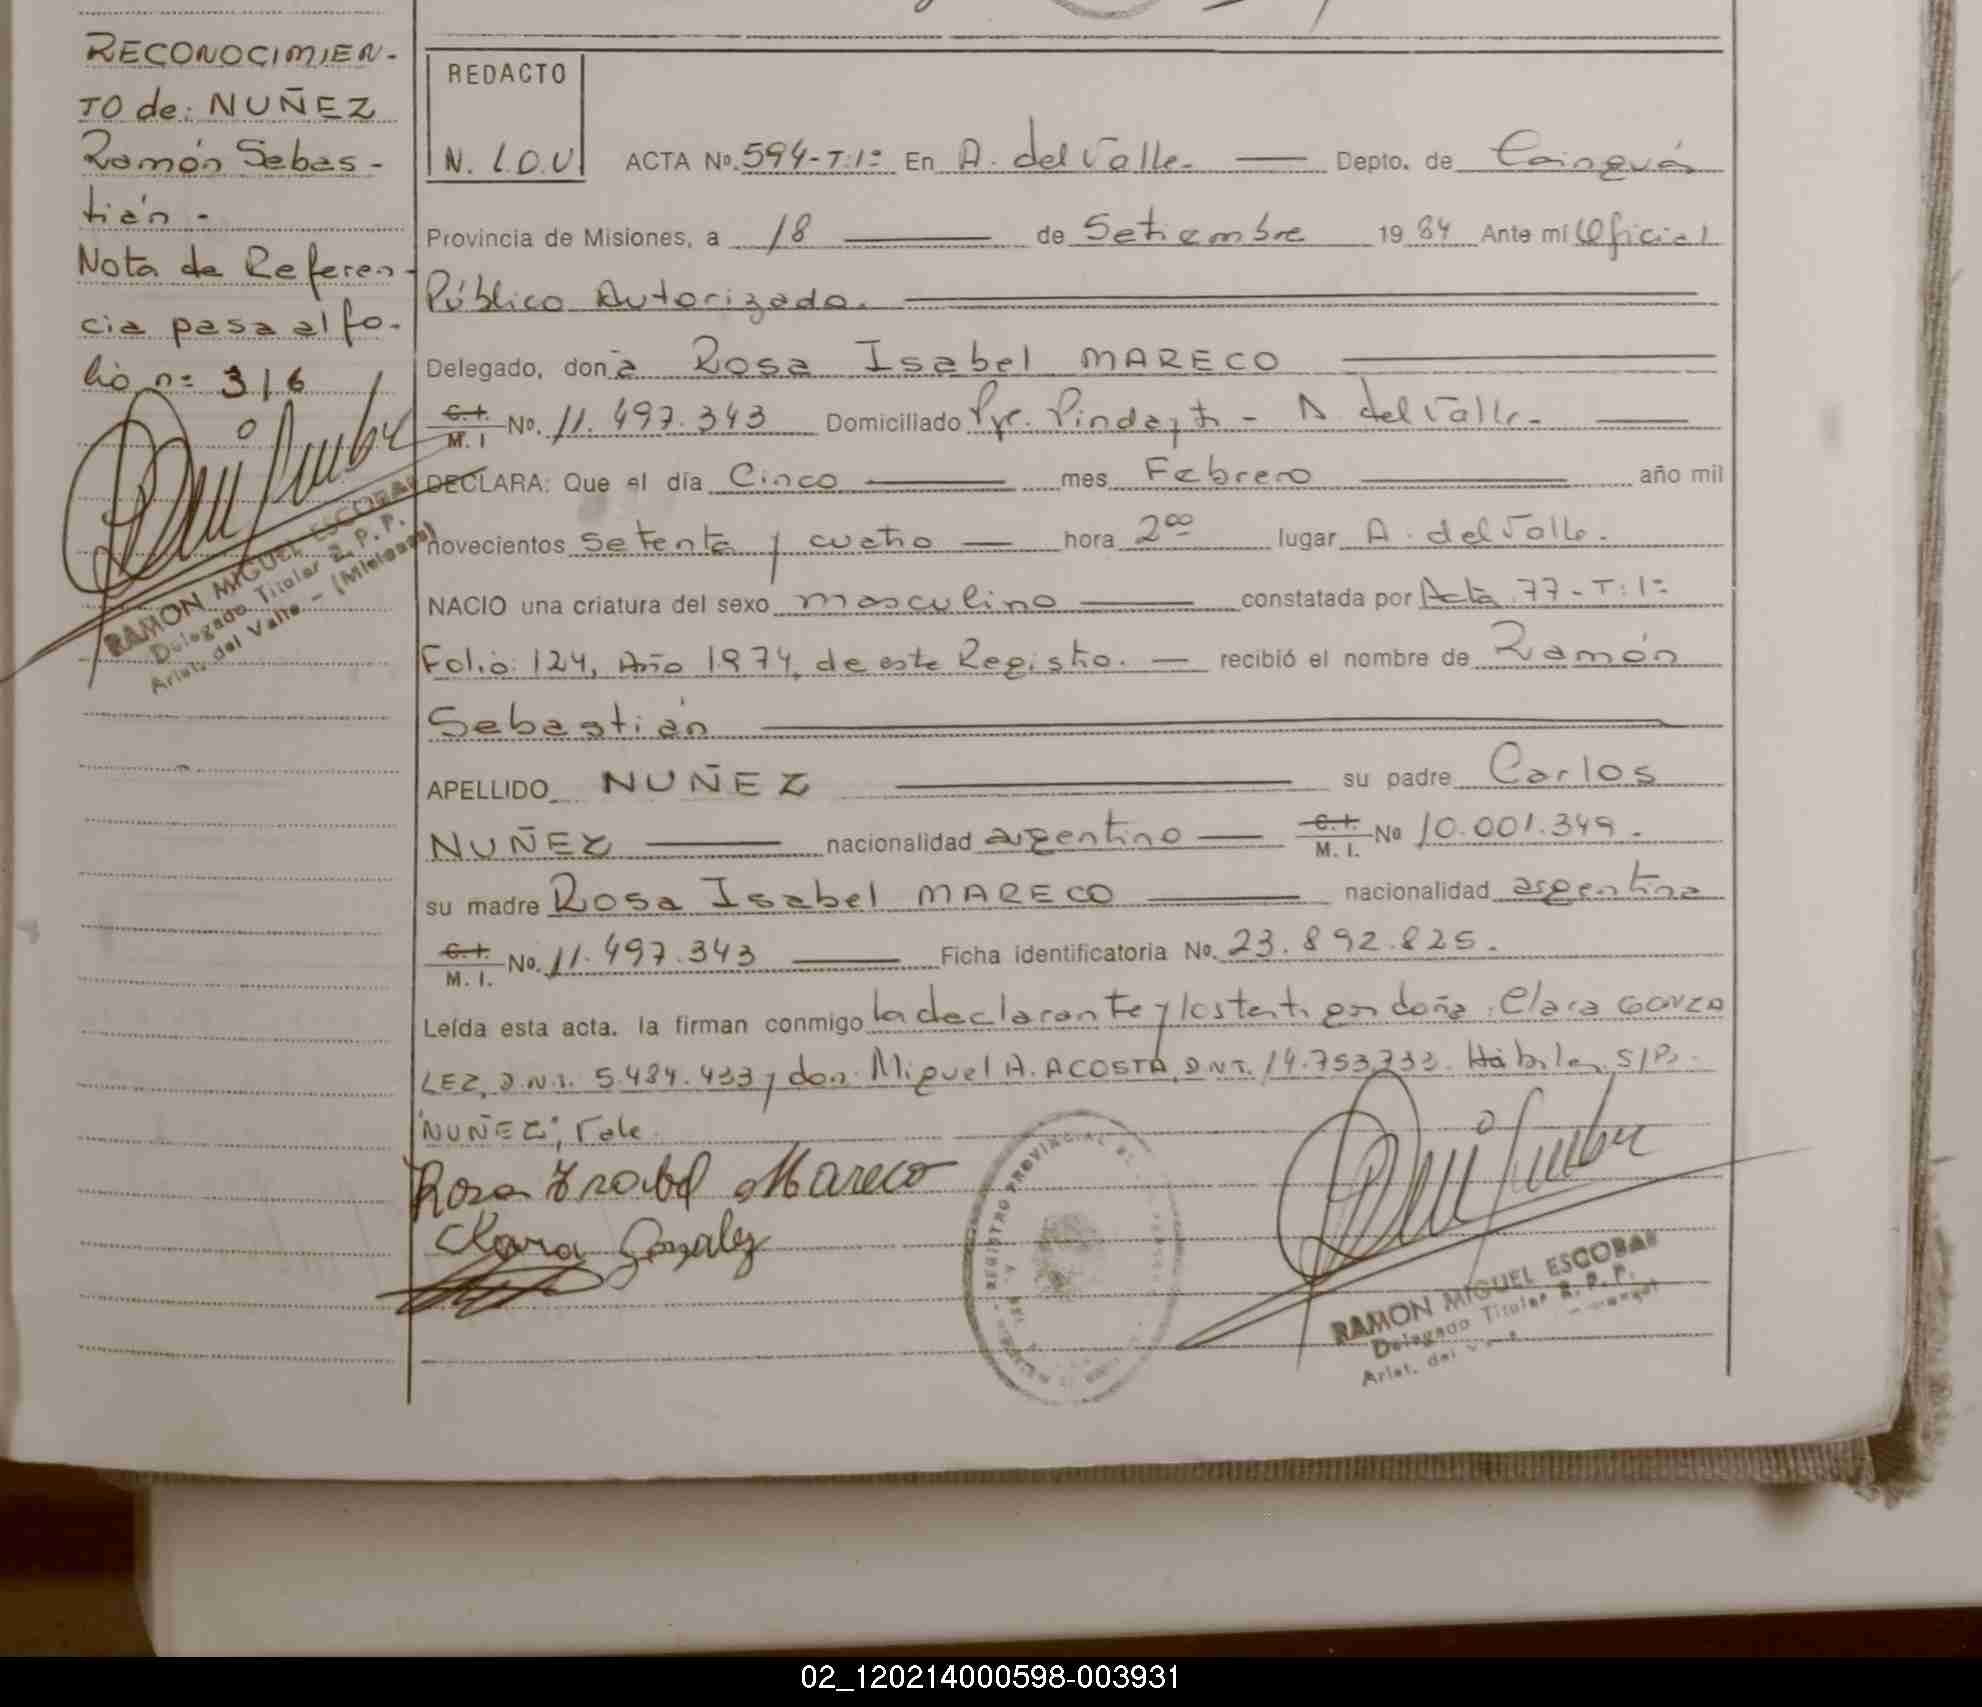 RECONOCIMIEN-
TO de: NUÑEZ
Ramón Sebas-
tián -
Nota de Referen-
cia pasa al fo-
lio nº 316
RAMON MIGUEL ESCOBAR
Delegado Titular R. P. P.
Arist. del Valle - (Misiones)
REDACTO
N. L.O.V
ACTA No. 594-T:1º En A. del Valle. Depto. de Cainguás
Provincia de Misiones, a 18 de Setiembre 1984 Ante mí Oficial
Público Autorizado.
Delegado, donã Rosa Isabel MARECO
C.I. M. I No. 11.497.343 Domiciliado Pje. Pindayti - A del Valle.
DECLARA: Que el día Cinco mes Febrero año mil
novecientos setenta y cuatro hora 2⁰⁰ lugar A. del Valle.
NACIO una criatura del sexo masculino constatada por Acta 77-T:1º
Folio: 124, Año 1974, de este Registro. recibió el nombre de Ramón
Sebastián
APELLIDO NUÑEZ su padre Carlos
NUÑEZ nacionalidad argentino C.I. M. I. No 10.001.349.
su madre Rosa Isabel MARECO nacionalidad argentina
C.I. M. I. No. 11.497.343 Ficha identificatoria No. 23.892.825.
Leída esta acta. la firman conmigo la declarante y los testigos doña: Clara GONZA
LEZ, D.N.I. 5.484.433 y don: Miguel A. ACOSTA, D.N.I. 14.753.733. Hábiles, S/P:
"NUÑEZ", Vale.
Rosa Ysabel Mareco
Clara Gonzalez
REGISTRO PROVINCIAL DE
RAMON MIGUEL ESCOBAR
Delegado Titular R. P. P.
Arist. del
02_120214000598-003931